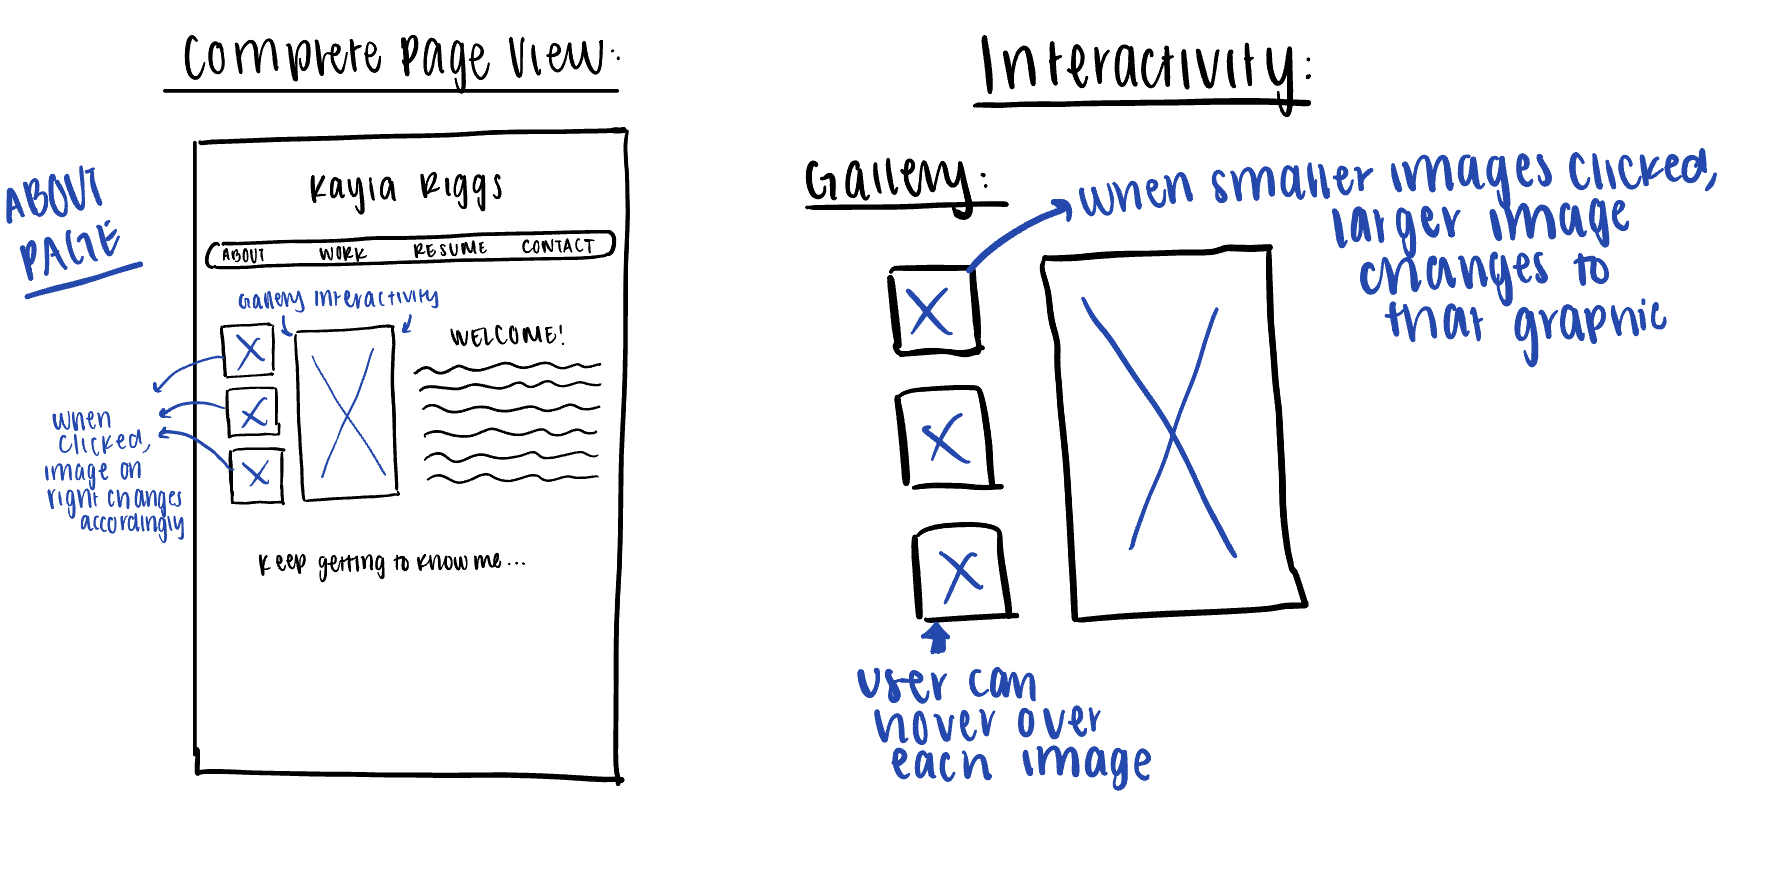 Complete Page View:
ABOUT
PAGE
Kayla Riggs
ABOUT WORK RESUME CONTACT
Gallery Interactivity
WELCOME!
when
clicked,
image on
right changes
accordingly
Keep getting to know me...
Interactivity:
Gallery:
when smaller images clicked,
larger image
changes to
that graphic
user can
hover over
each image